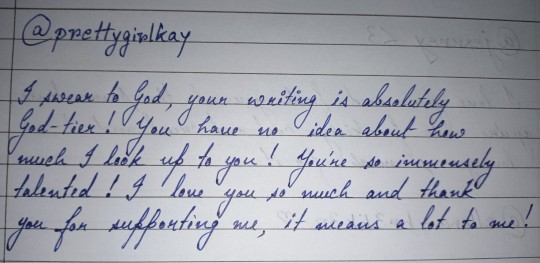 @prettygirlkay
I swear to God, your writing is absolutely
God-tier! You have no idea about how
much I look up to you! You're so immensely
talented! I love you so much and thank
you for supporting me, it means a lot to me!